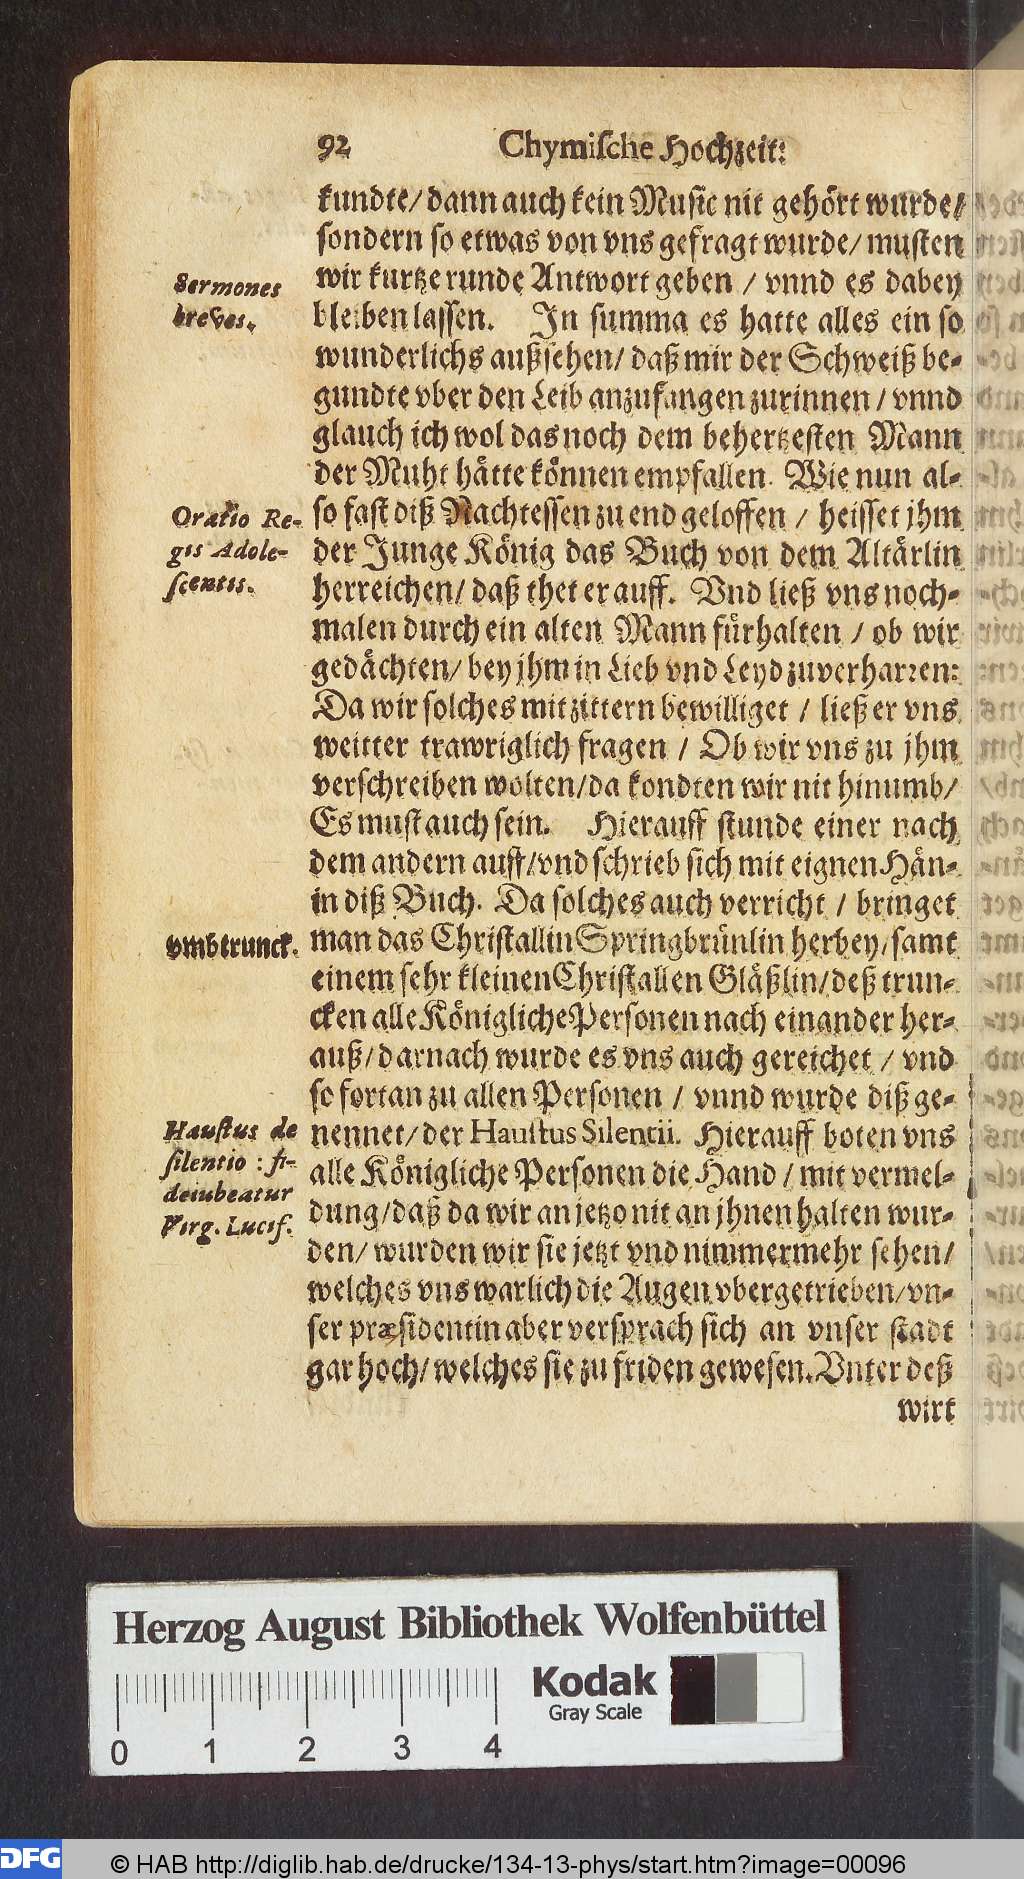 92 Chymiſche Hochzeit:
kundte/ dann auch kein Muſic nit gehört wurde/
ſondern ſo etwas von vns gefragt wurde/ muſten
wir kurtze runde Antwort geben / vnnd es dabey
bleiben laſſen. In ſumma es hatte alles ein ſo
wunderlichs außſehen/ daß mir der Schweiß be-
gundte vber den Leib anzufangen zurinnen / vnnd
glauch ich wol das noch dem behertzeſten Mann
der Muht hätte können empfallen. Wie nun al-
ſo faſt diß Nachteſſen zu end geloffen / heiſſet jhm
der Junge König das Buch von dem Altärlin
herreichen/ daß thet er auff. Vnd ließ vns noch-
malen durch ein alten Mann fürhalten / ob wir
gedächten/ bey jhm in Lieb vnd Leyd zuverharren:
Da wir ſolches mit zittern bewilliget / ließ er vns
weitter trawriglich fragen / Ob wir vns zu jhm
verſchreiben wolten/ da kondten wir nit hinumb/
Es muſt auch ſein. Hierauff ſtunde einer nach
dem andern auff/ vnd ſchrieb ſich mit eignen Hän-
in diß Buch. Da ſolches auch verricht / bringet
man das Chriſtallin Springbrünlin herbey/ ſamt
einem ſehr kleinen Chriſtallen Gläßlin/ deß trun-
cken alle Königliche Perſonen nach einander her-
auß/ darnach wurde es vns auch gereichet / vnd
ſo fortan zu allen Perſonen / vnnd wurde diß ge-
nennet/ der Hauſtus Silentii. Hierauff boten vns
alle Königliche Perſonen die Hand / mit vermel-
dung/ daß da wir an jetzo nit an jhnen halten wur-
den/ wurden wir ſie jetzt vnd nimmermehr ſehen/
welches vns warlich die Augen vbergetrieben/ vn-
ſer præſidentin aber verſprach ſich an vnſer ſtadt
gar hoch/ welches ſie zu friden geweſen. Vnter deß
wirt
Sermones
breves.
Oratio Re-
gis Adole-
ſcentis.
vmbtrunck.
Hauſtus de
ſilentio : ſi-
deiubeatur
Virg. Lucif.
Herzog August Bibliothek Wolfenbüttel
Kodak
Gray Scale
0 1 2 3 4
DFG
© HAB http://diglib.hab.de/drucke/134-13-phys/start.htm?image=00096